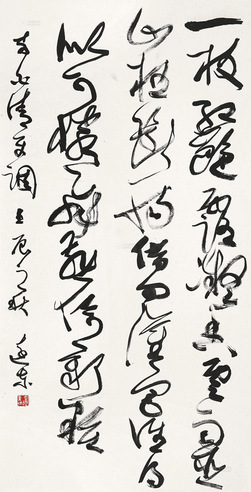 一枝红艳露凝香云雨巫
山枉断肠借问汉宫谁得
似可怜飞燕倚新妆
李白清平调